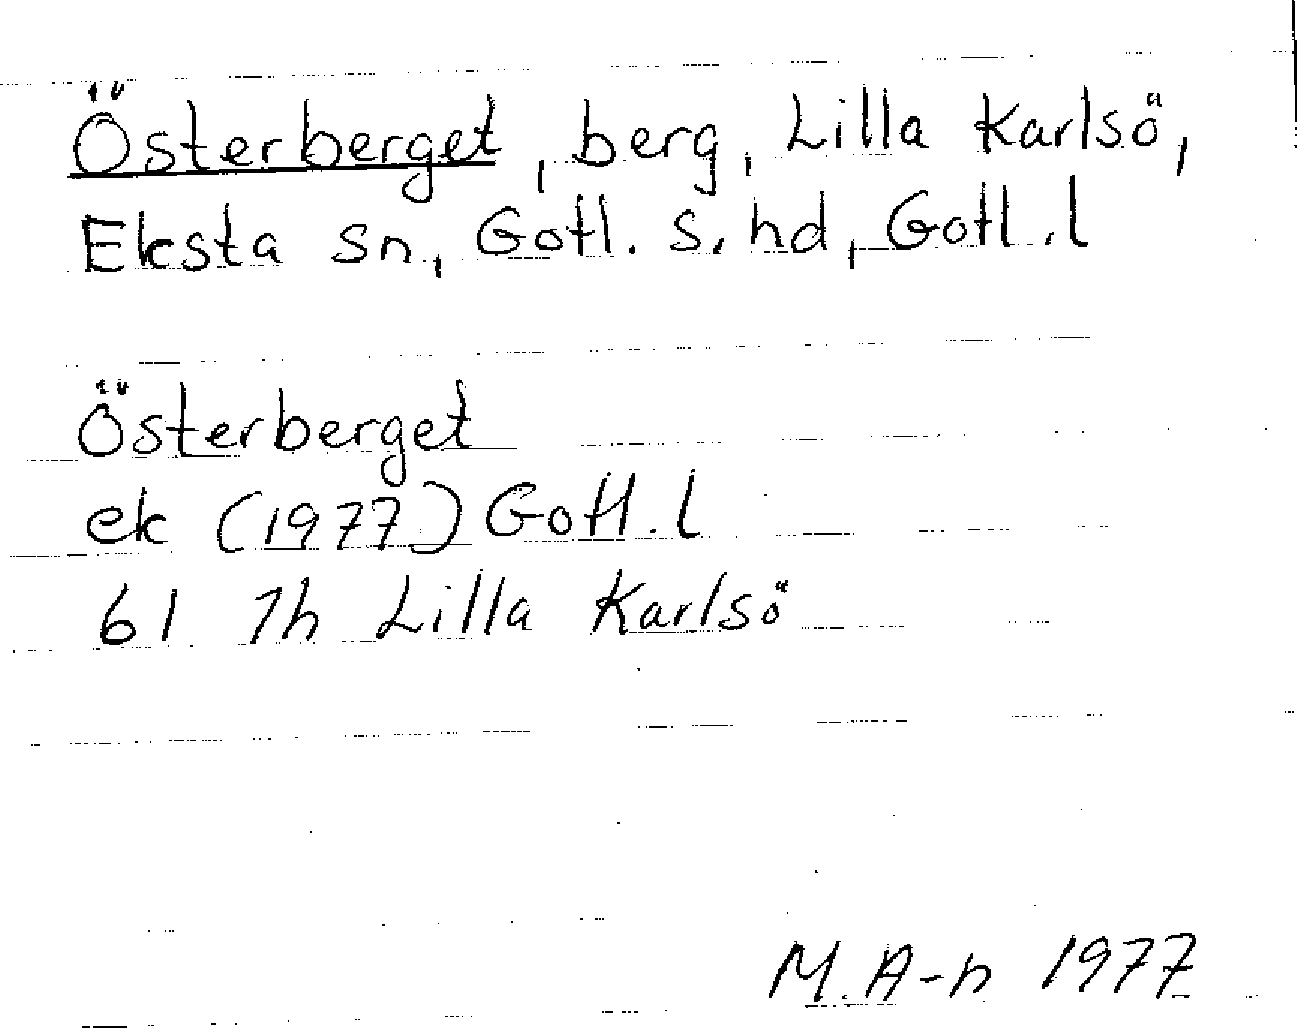 Österberget, berg, Lilla Karlsö,
Eksta sn, Gotl. s. hd, Gotl. l
Österberget
ek (1977) Gotl. l
61 7h Lilla Karlsö
M. A-n 1977